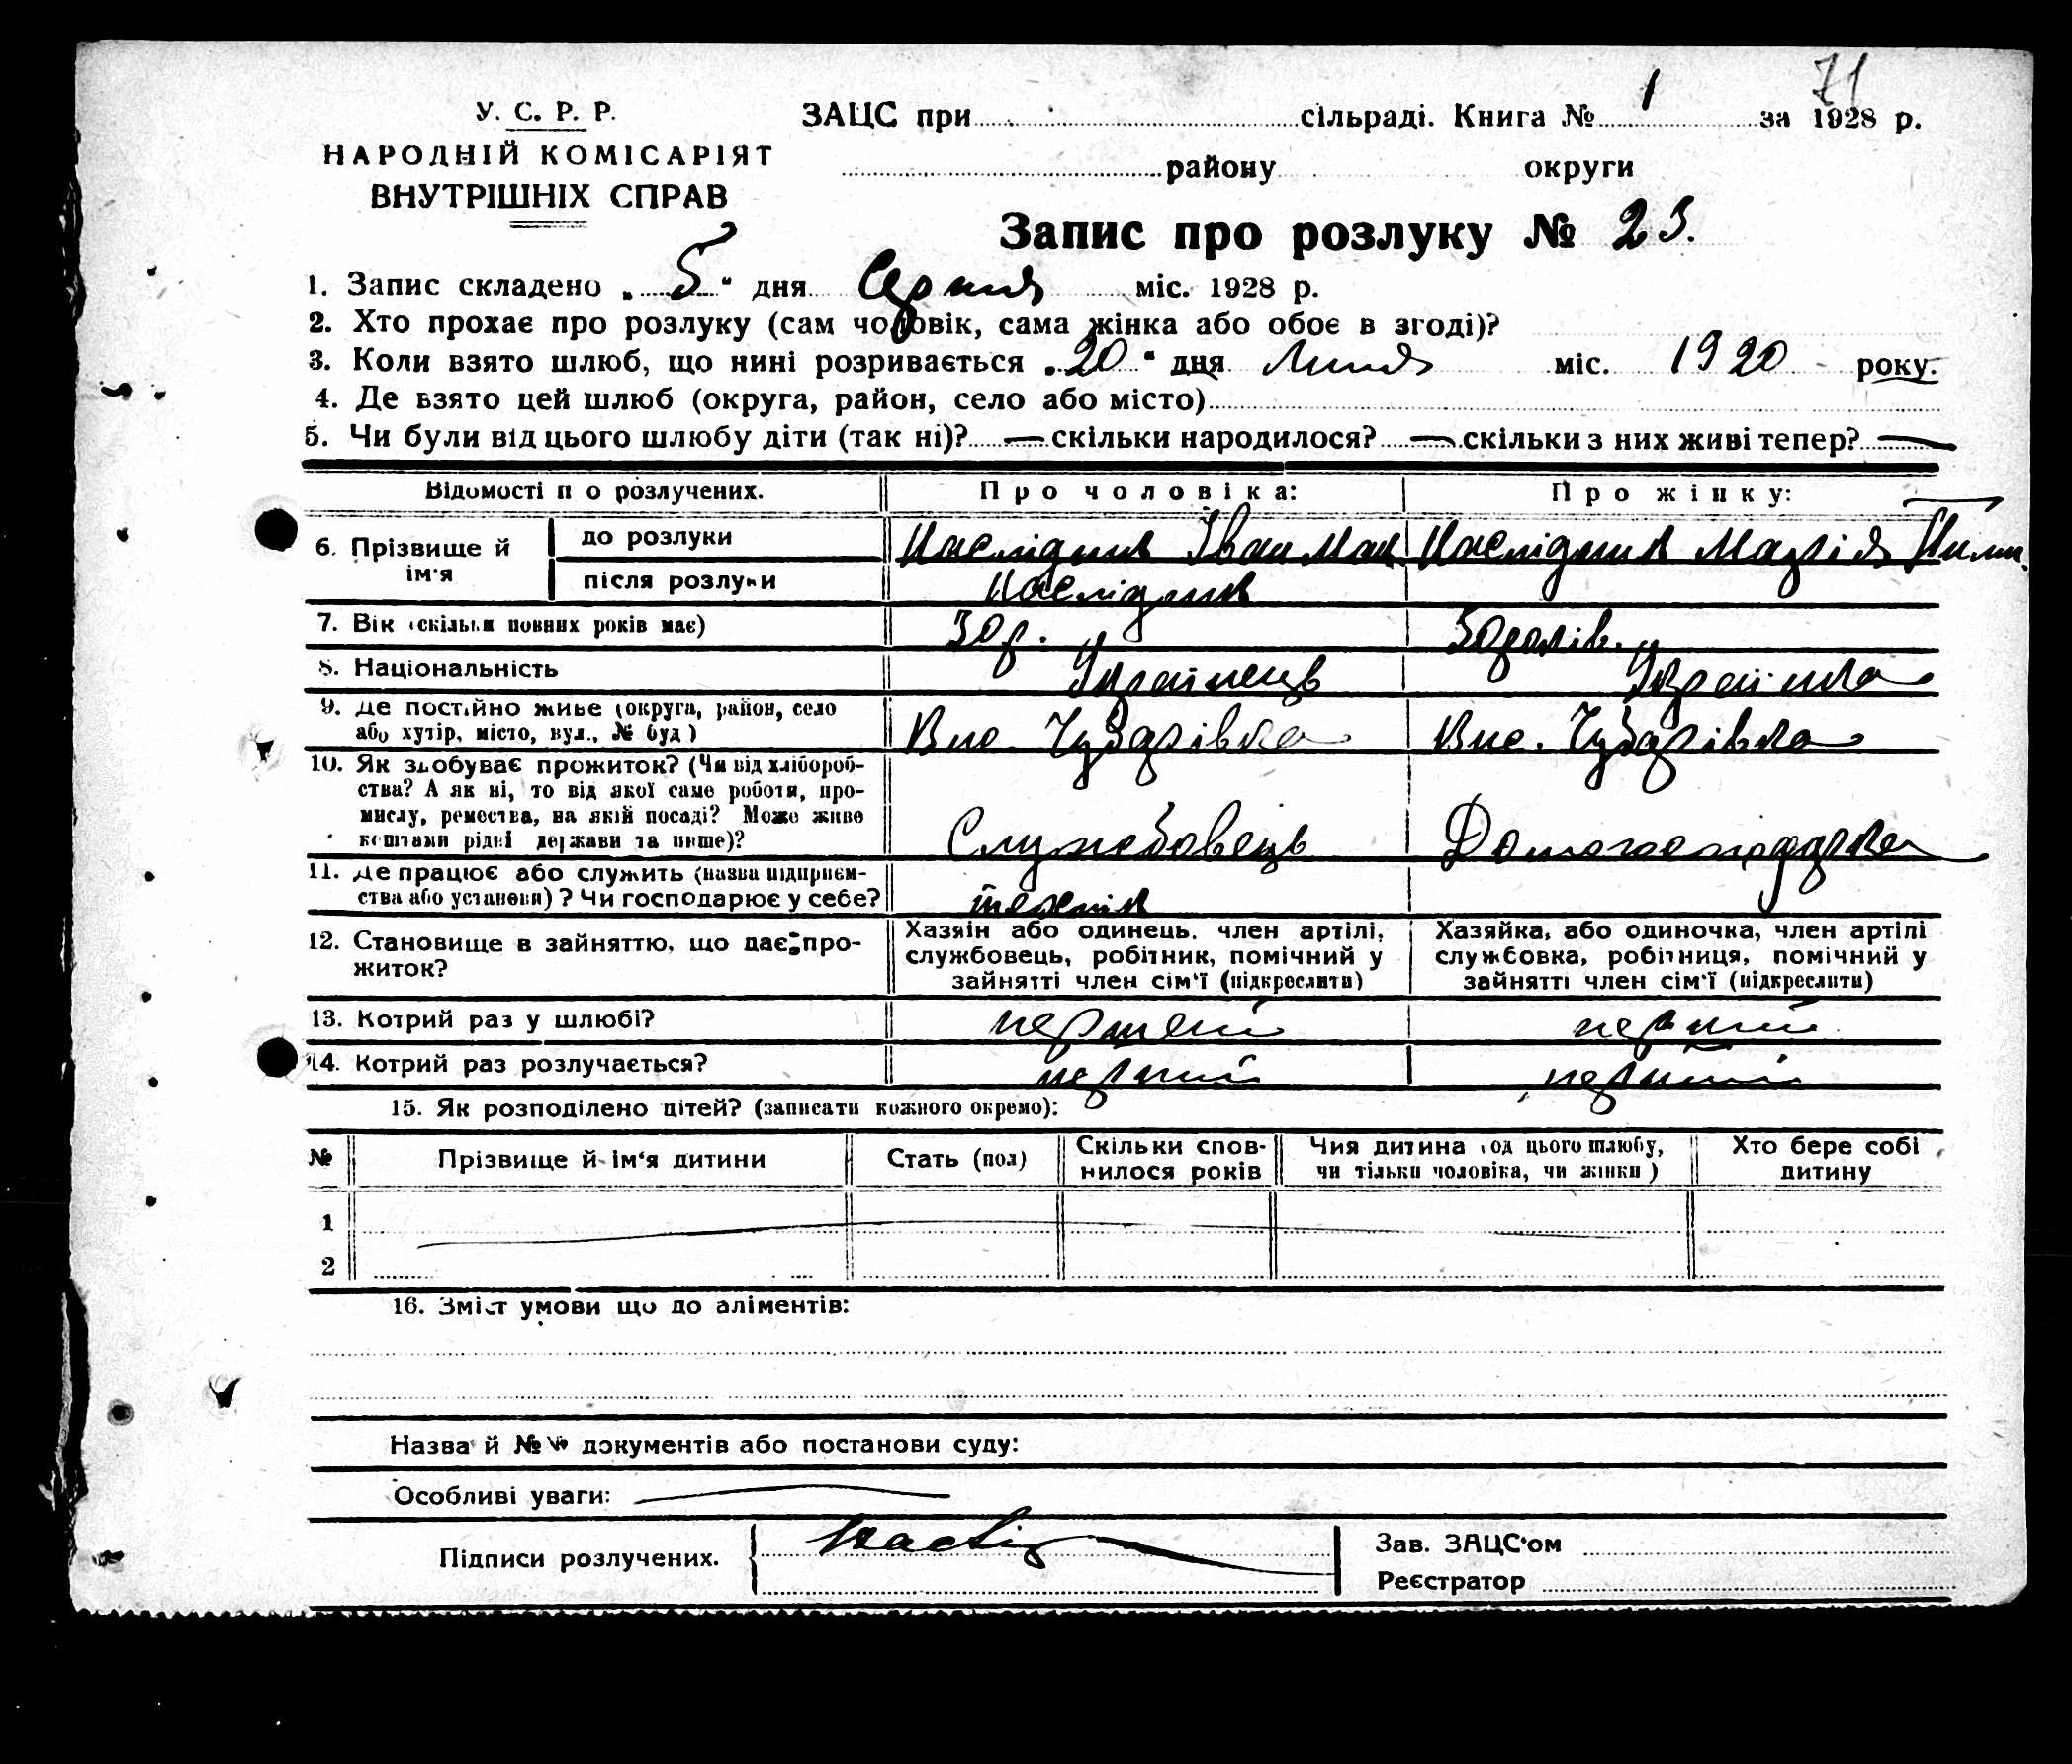 71
У. С. Р. Р.
НАРОДНІЙ КОМІСАРІЯТ
ВНУТРІШНІХ СПРАВ
ЗАЦС при сільраді. Книга № 1 за 1928 р.
району округи
Запис про розлуку № 23.
1. Запис складено „5“ дня Серпня міс. 1928 р.
2. Хто прохає про розлуку (сам чоловік, сама жінка або обоє в згоді)?
3. Коли взято шлюб, що нині розривається „20“ дня Липня міс. 1920 року.
4. Де взято цей шлюб (округа, район, село або місто)
5. Чи були від цього шлюбу діти (так ні)? — скільки народилося? — скільки з них живі тепер? —
Відомості п о розлучених. Про чоловіка: Про жінку:
6. Прізвище й ім'я
до розлуки Наслідник Іван Мак Наслідник Марія Пилип.
після розлуки Наслідник
7. Вік (скільки повних років має) 30 р. 30 років.
8. Національність Українець Українка
9. Де постійно живе (округа, район, село
або хутір, місто, вул., № буд) Вис. Чубарівка Вис. Чубарівка
10. Як здобуває прожиток? (Чи від хлібороб-
ства? А як ні, то від якої саме роботи, про-
мислу, ремества, на якій посаді? Може живе
коштами рідні держави та инше)? Службовець Домогосподарка
11. Де працює або служить (назва підприєм-
ства або установи)? Чи господарює у себе? технік
12. Становище в зайняттю, що дає про-
житок?
Хазяін або одинець. член артілі,
службовець, робітник, помічний у
зайнятті член сім'ї (підкреслити)
Хазяйка, або одиночка, член артілі
службовка, робітниця, помічний у
зайнятті член сім'ї (підкреслити)
13. Котрий раз у шлюбі? перший перший
14. Котрий раз розлучається? перший перший
15. Як розподілено дітей? (записати кожного окремо):
№ Прізвище й ім'я дитини Стать (пол) Скільки спов-
нилося років Чия дитина (од цього шлюбу,
чи тільки чоловіка, чи жінки) Хто бере собі
дитину
1
2
16. Зміст умови що до аліментів:
Назва й №№ документів або постанови суду:
Особливі уваги: —
Підписи розлучених.
Зав. ЗАЦС'ом
Реєстратор